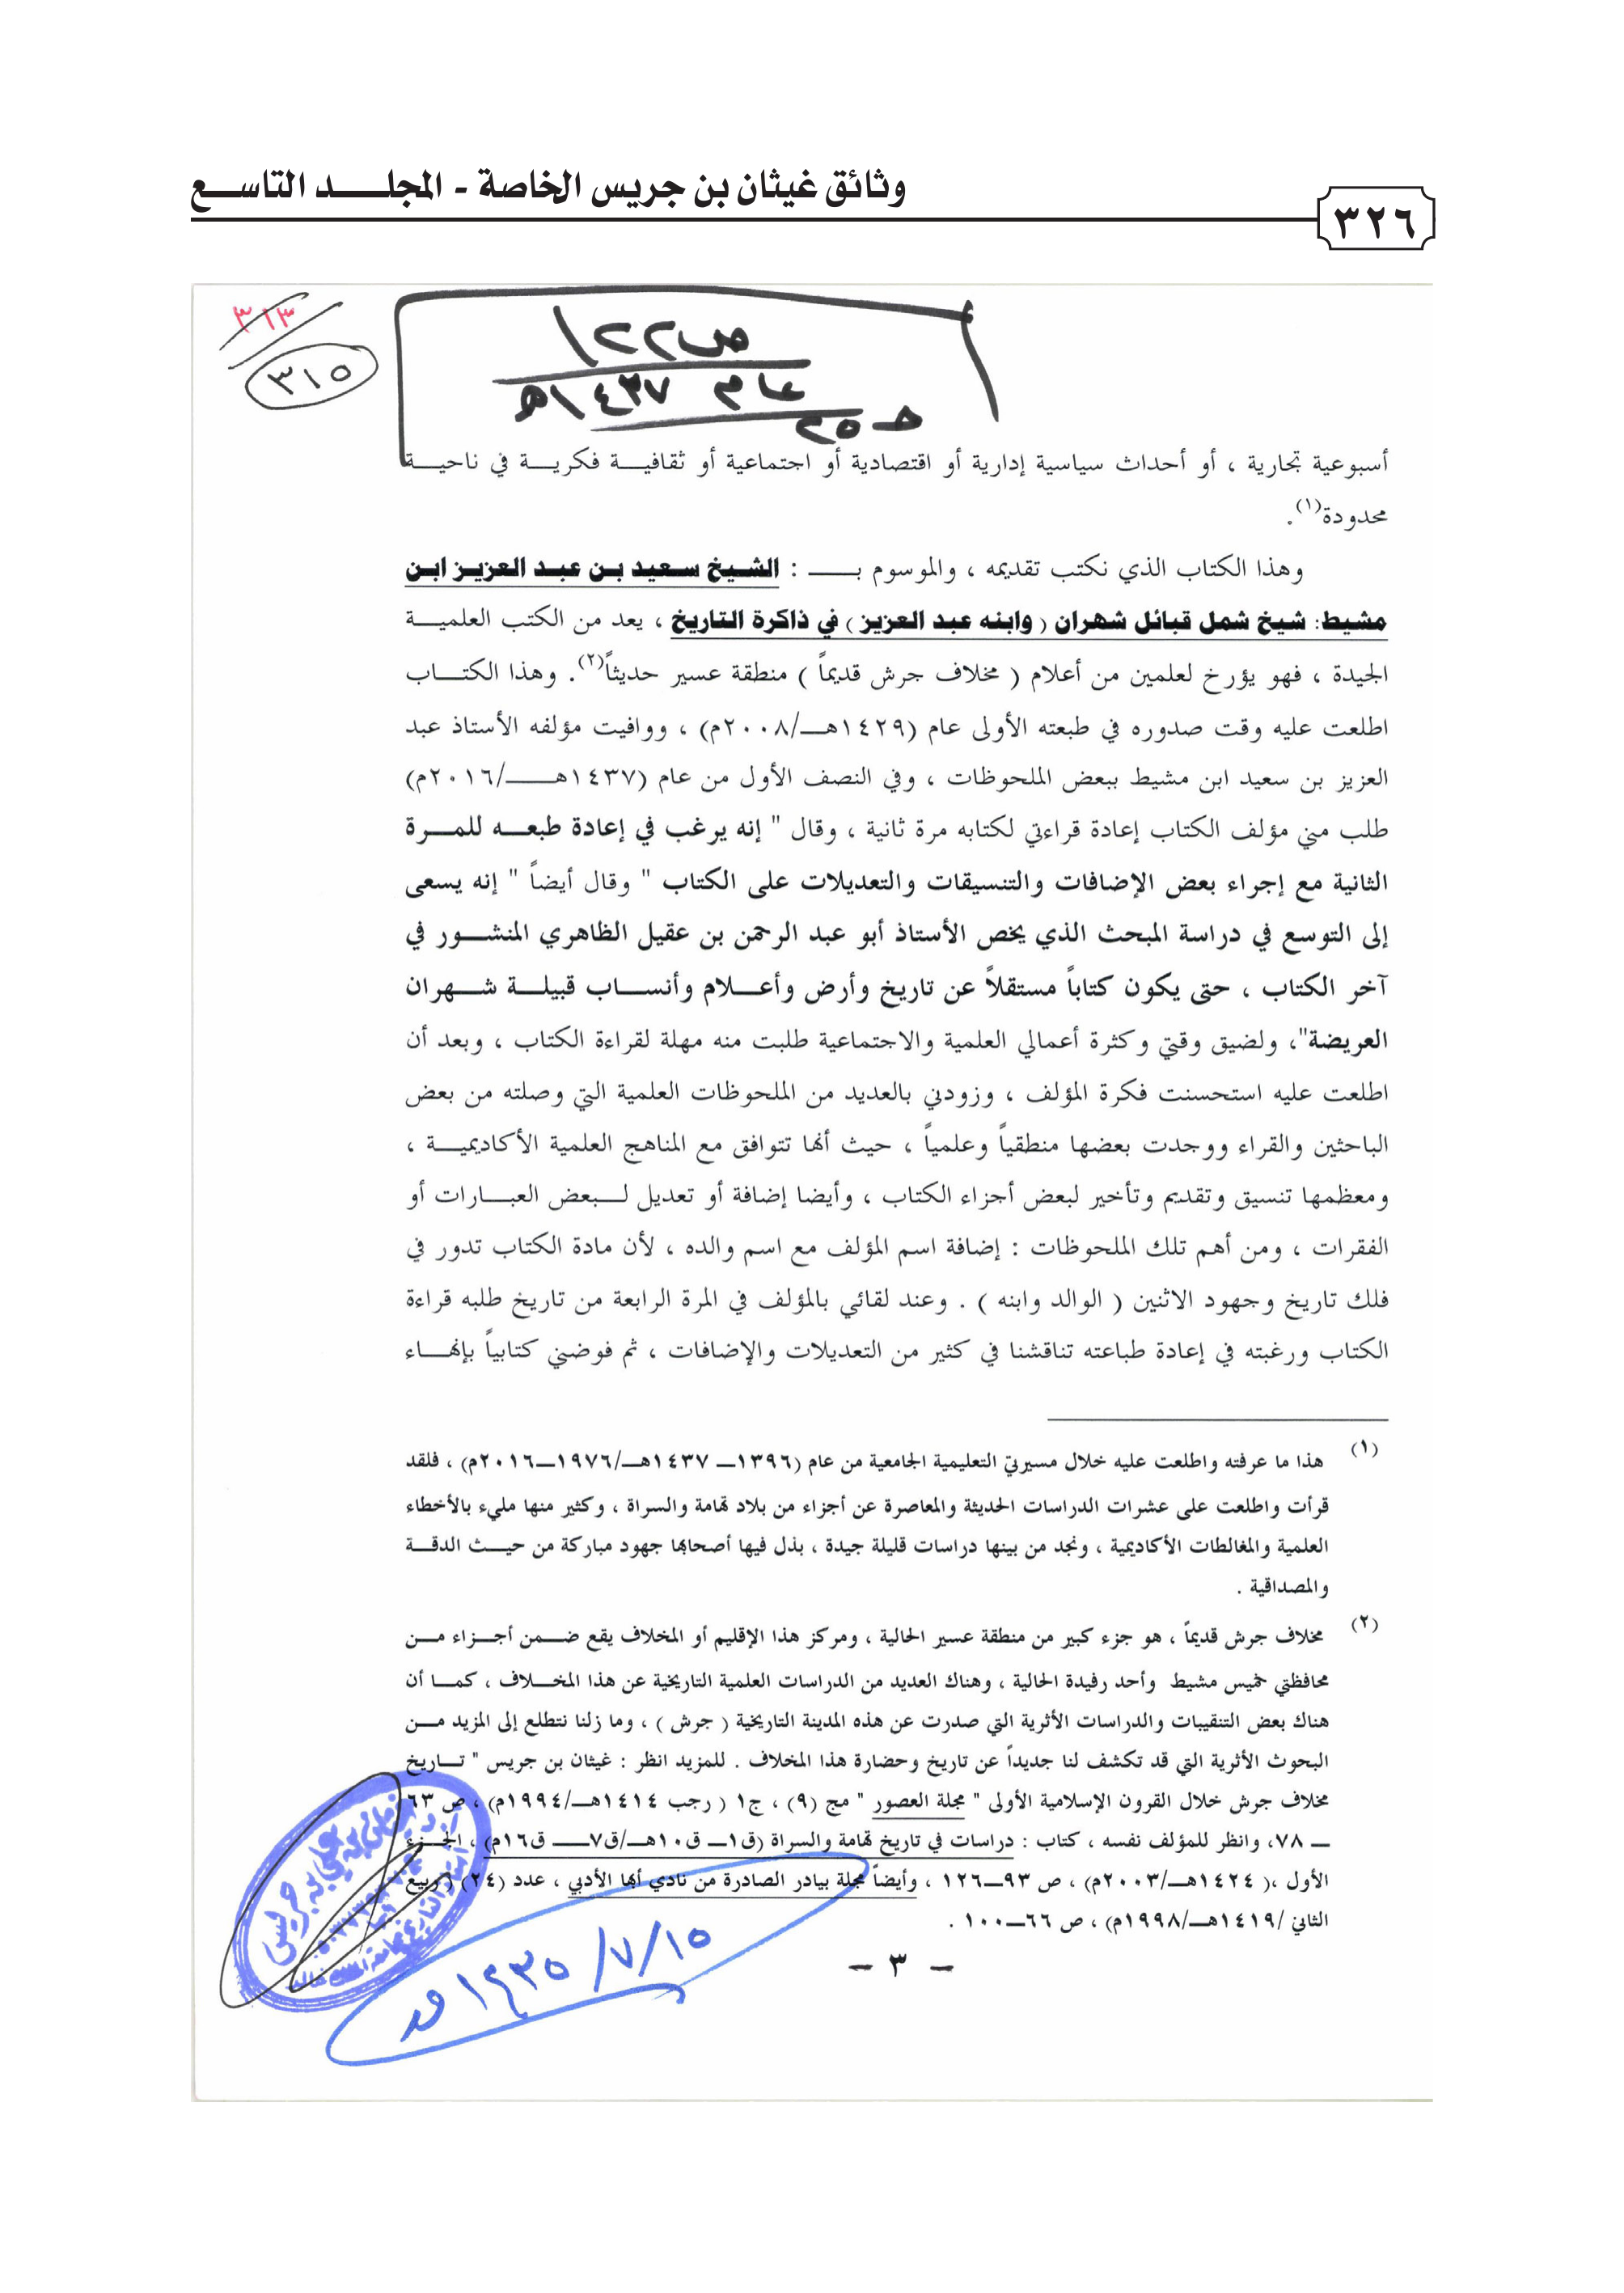 وثائق غيثان بن جريس الخاصة - المجلـــد التاســـع
٣٢٦
٣١٣
٣١٥
ص١٢٢
عام ١٤٣٧هـ
أسبوعية تجارية ، أو أحداث سياسية إدارية أو اقتصادية أو اجتماعية أو ثقافيـــة فكريـــة في ناحيـــة
محدودة(١).
وهذا الكتاب الذي نكتب تقديمه ، والموسوم بـــــ : الشـيخ سـعيد بـن عبـد العزيـز ابـن
مشيط: شيخ شمل قبائل شهران ( وابنه عبد العزيز ) في ذاكرة التاريخ ، يعد من الكتب العلميـــة
الجيدة ، فهو يؤرخ لعلمين من أعلام ( مخلاف جرش قديماً ) منطقة عسير حديثاً(٢). وهذا الكتـــاب
اطلعت عليه وقت صدوره في طبعته الأولى عام (١٤٢٩هـــ/٢٠٠٨م) ، ووافيت مؤلفه الأستاذ عبد
العزيز بن سعيد ابن مشيط ببعض الملحوظات ، وفي النصف الأول من عام (١٤٣٧هـــــ/٢٠١٦م)
طلب مني مؤلف الكتاب إعادة قراءتي لكتابه مرة ثانية ، وقال " إنه يرغب في إعادة طبعـــه للمـــرة
الثانية مع إجراء بعض الإضافات والتنسيقات والتعديلات على الكتاب " وقال أيضاً " إنه يسعى
إلى التوسع في دراسة المبحث الذي يخص الأستاذ أبو عبد الرحمن بن عقيل الظاهري المنشـــور في
آخر الكتاب ، حتى يكون كتاباً مستقلاً عن تاريخ وأرض وأعـــلام وأنســـاب قبيلـــة شـــهران
العريضة"، ولضيق وقتي وكثرة أعمالي العلمية والاجتماعية طلبت منه مهلة لقراءة الكتاب ، وبعد أن
اطلعت عليه استحسنت فكرة المؤلف ، وزودني بالعديد من الملحوظات العلمية التي وصلته من بعض
الباحثين والقراء ووجدت بعضها منطقياً وعلمياً ، حيث أنها تتوافق مع المناهج العلمية الأكاديميـــة ،
ومعظمها تنسيق وتقديم وتأخير لبعض أجزاء الكتاب ، وأيضا إضافة أو تعديل لـــبعض العبـــارات أو
الفقرات ، ومن أهم تلك الملحوظات : إضافة اسم المؤلف مع اسم والده ، لأن مادة الكتاب تدور في
فلك تاريخ وجهود الاثنين ( الوالد وابنه ) . وعند لقائي بالمؤلف في المرة الرابعة من تاريخ طلبه قراءة
الكتاب ورغبته في إعادة طباعته تناقشنا في كثير من التعديلات والإضافات ، ثم فوضني كتابياً بإنهـــاء
(١) هذا ما عرفته واطلعت عليه خلال مسيرتي التعليمية الجامعية من عام (١٣٩٦ـــ ١٤٣٧هـــ/١٩٧٦ـــ٢٠١٦م) ، فلقد
قرأت واطلعت على عشرات الدراسات الحديثة والمعاصرة عن أجزاء من بلاد تهامة والسراة ، وكثير منها مليء بالأخطاء
العلمية والمغالطات الأكاديمية ، ونجد من بينها دراسات قليلة جيدة ، بذل فيها أصحابها جهود مباركة من حيـــث الدقـــة
والمصداقية .
(٢) مخلاف جرش قديماً ، هو جزء كبير من منطقة عسير الحالية ، ومركز هذا الإقليم أو المخلاف يقع ضـــمن أجـــزاء مـــن
محافظتي خميس مشيط وأحد رفيدة الحالية ، وهناك العديد من الدراسات العلمية التاريخية عن هذا المخـــلاف ، كمـــا أن
هناك بعض التنقيبات والدراسات الأثرية التي صدرت عن هذه المدينة التاريخية ( جرش ) ، وما زلنا نتطلع إلى المزيد مـــن
البحوث الأثرية التي قد تكشف لنا جديداً عن تاريخ وحضارة هذا المخلاف . للمزيد انظر : غيثان بن جريس " تـــاريخ
مخلاف جرش خلال القرون الإسلامية الأولى " مجلة العصور " مج (٩) ، ج١ ( رجب ١٤١٤هـــ/١٩٩٤م) ، ص ٦٣
ـــ ٧٨، وانظر للمؤلف نفسه ، كتاب : دراسات في تاريخ تهامة والسراة (ق١ـــ ق١٠هـــ/ق٧ـــــ ق١٦م) ، الجـــزء
الأول ،( ١٤٢٤هـــ/٢٠٠٣م) ، ص ٩٣ـــ١٢٦ ، وأيضاً مجلة بيادر الصادرة من نادي أبها الأدبي ، عدد (٢٤) ( ربيع
الثاني /١٤١٩هـــ/١٩٩٨م) ، ص ٦٦ـــ١٠٠ .
– ٣ –
١٤٣٥/٧/١٥هـ